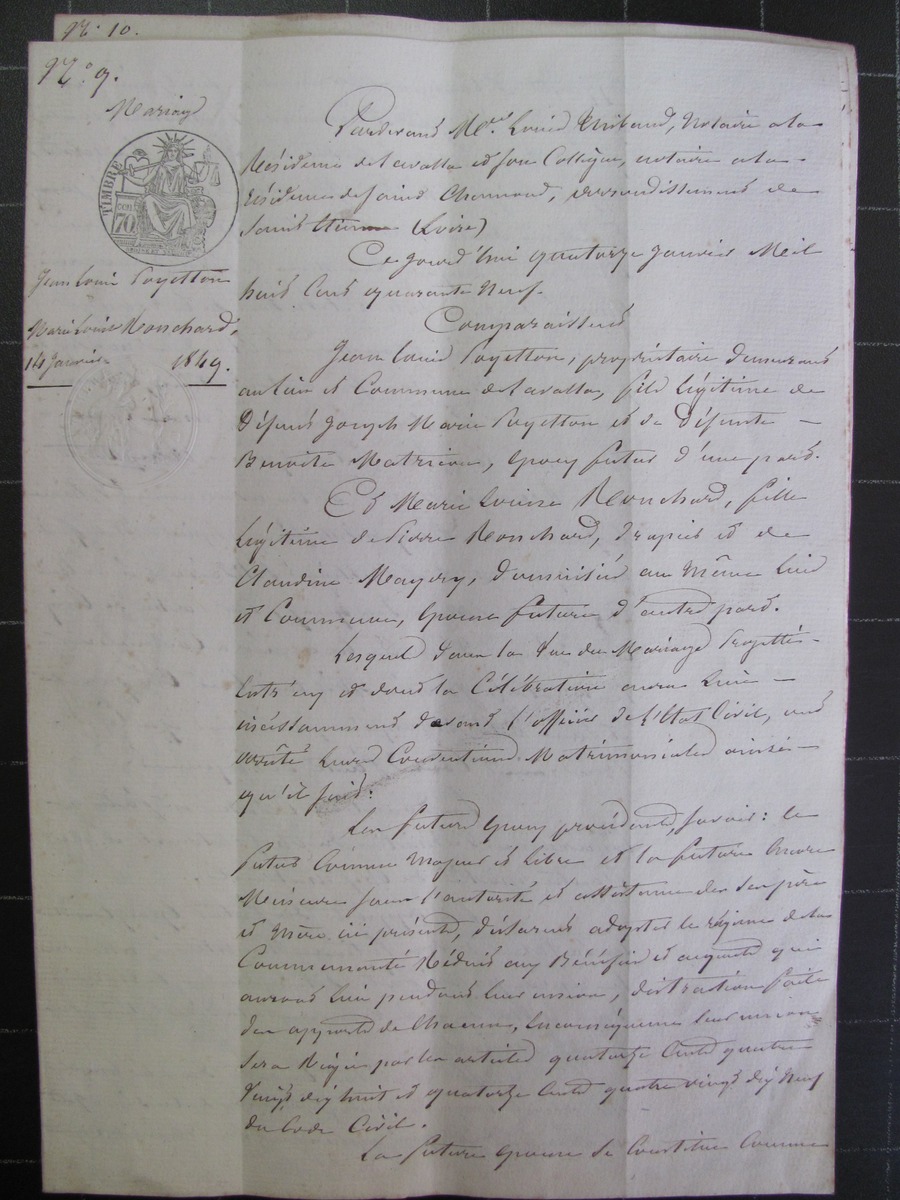 N° 10.
N° 9.
Mariage
TIMBRE
70
Jean Louis Poyetton
Marie Louise Ronchard,
14 Janvier 1849.
Pardevant Me Louis Thibaud, Notaire à la
Résidence de Lavalla et son Collègue, notaire à la
résidence de Saint Chamond, arrondissement de
Saint Etienne (Loire)
Ce jourd'hui quatorze Janvier Mil
huit Cent quarante Neuf.
Comparaissent
Jean Louis Poyetton, propriétaire demeurant
au lieu et Commune de Lavalla, fils légitime de
Défunt Joseph Marie Poyetton et de Défunte
Benoite Matricon, époux futur d'une part.
Et Marie Louise Ronchard, fille
Légitime de Pierre Ronchard, et de
Claudine Mayery, domiciliée au Même Lieu
et Commune, épouse future d'autre part.
Lesquels dans la Vue du Mariage Projetté
entr'eux et dont la Célébration aura Lieu
incessamment devant l'officier de l'Etat Civil, ont
arrêté Leurs Conventions Matrimoniales ainsi
qu'il suit:
Les futurs époux procédants, savoir: le
futur Comme Majeur et Libre et la future Encore
Mineure sous l'autorité et assistance de ses père
et Mère ici présents, déclarent adopter le régime de la
Communauté Réduite aux Bénéfices et acquets qui
auront Lieu pendant leur union, distraction faite
des apports de Chacun, En conséquence leur union
sera Régie par les articles quatorze Cents quatre
Vingt dix huit et quatorze Cents quatre vingt dix Neuf
du Code Civil.
La future épouse se Constitue Comme